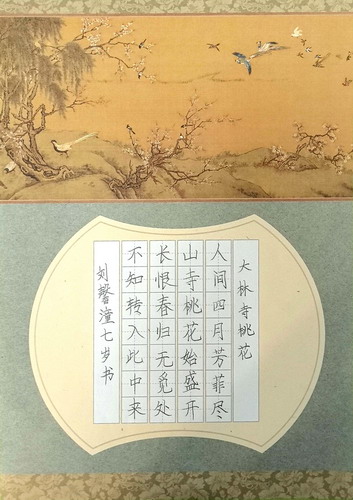 大林寺桃花
人间四月芳菲尽
山寺桃花始盛开
长恨春归无觅处
不知转入此中来
刘馨潼七岁书